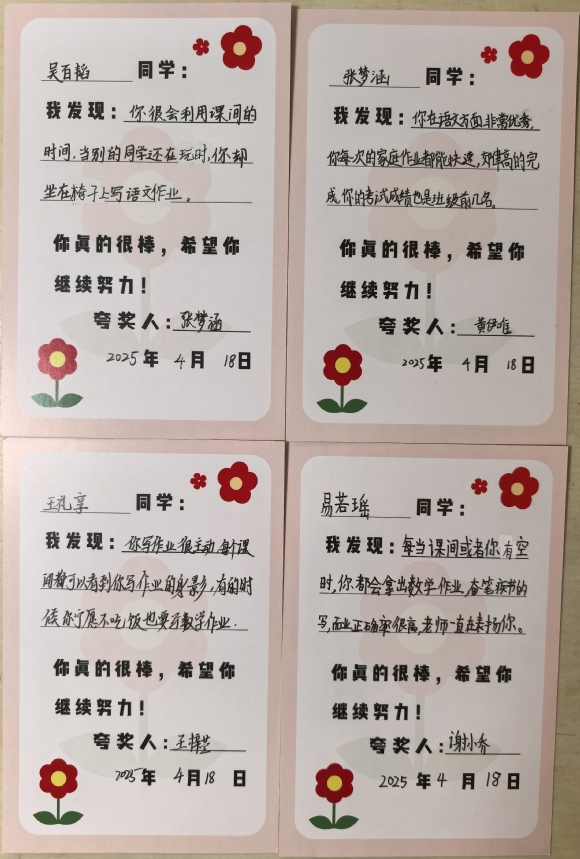 吴百韬 同学：
我发现：你很会利用课间的
时间，当别的同学还在玩时，你却
坐在椅子上写语文作业。
你真的很棒，希望你
继续努力！
夸奖人：张梦涵
2025年 4月 18日
张梦涵 同学：
我发现：你在语文方面非常优秀，
你每次的家庭作业都能快速，效率高的完
成，你的考试成绩也是班级前几名。
你真的很棒，希望你
继续努力！
夸奖人：黄伊唯
2025年 4月 18日
王礼享 同学：
我发现：你写作业很主动，每个课
间都可以看到你写作业的身影，有的时
候你宁愿不吃饭也要写数学作业.
你真的很棒，希望你
继续努力！
夸奖人：王
2025年 4月18 日
易若瑶 同学：
我发现：每当课间或者你有空
时，你都会拿出数学作业，奋笔疾书的
写，而且正确率很高，老师一直在表扬你。
你真的很棒，希望你
继续努力！
夸奖人：谢小乔
2025 年 4 月 18 日